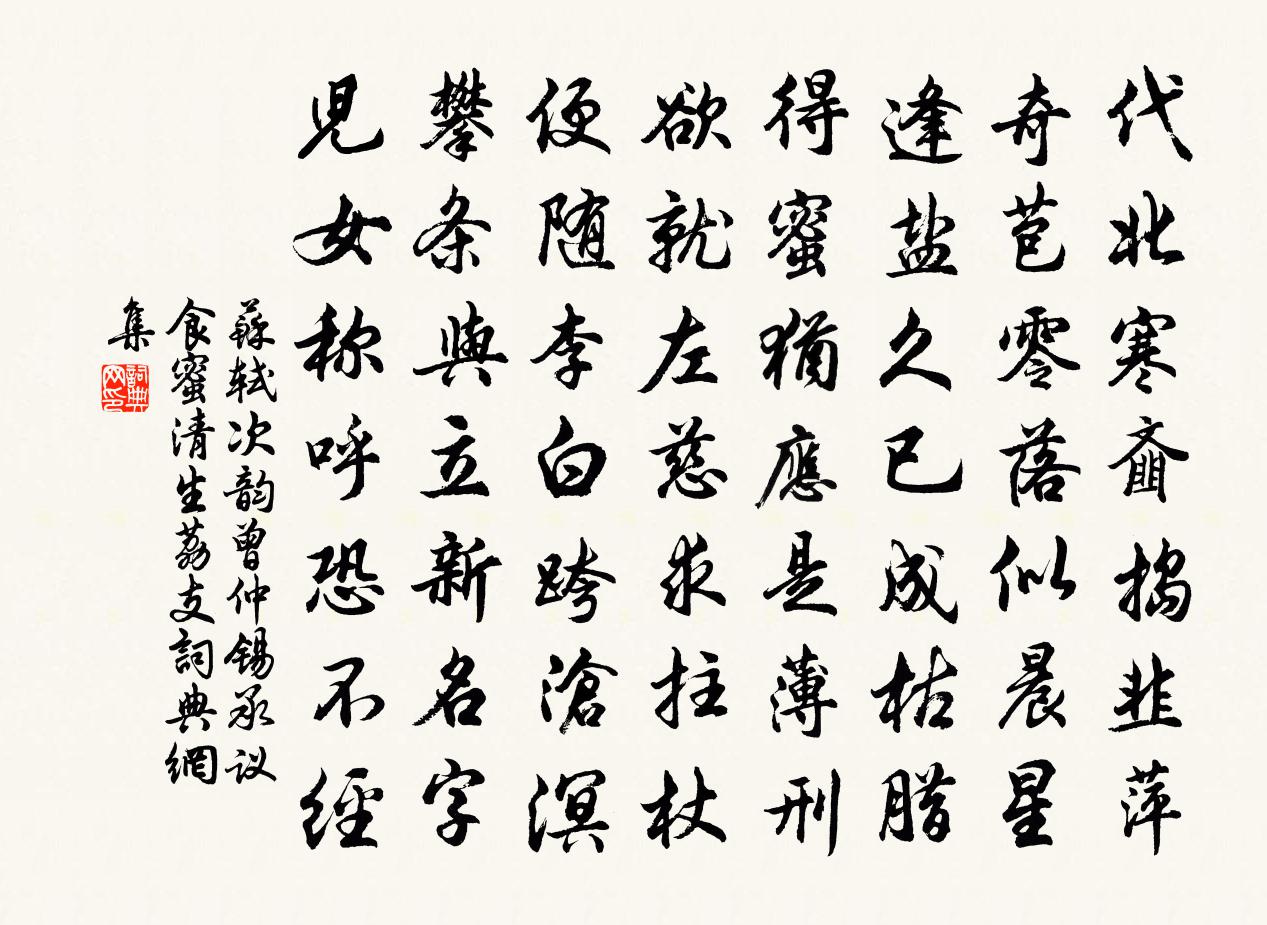 代北寒齑捣韭萍
奇苞零落似晨星
逢盐久已成枯腊
得蜜猶應是薄刑
欲就左慈求拄杖
便随李白跨滄溟
攀条與立新名字
兒女称呼恐不經
蘇轼次韵曾仲锡承议
食蜜清生荔支詞典網
集
詞典网印